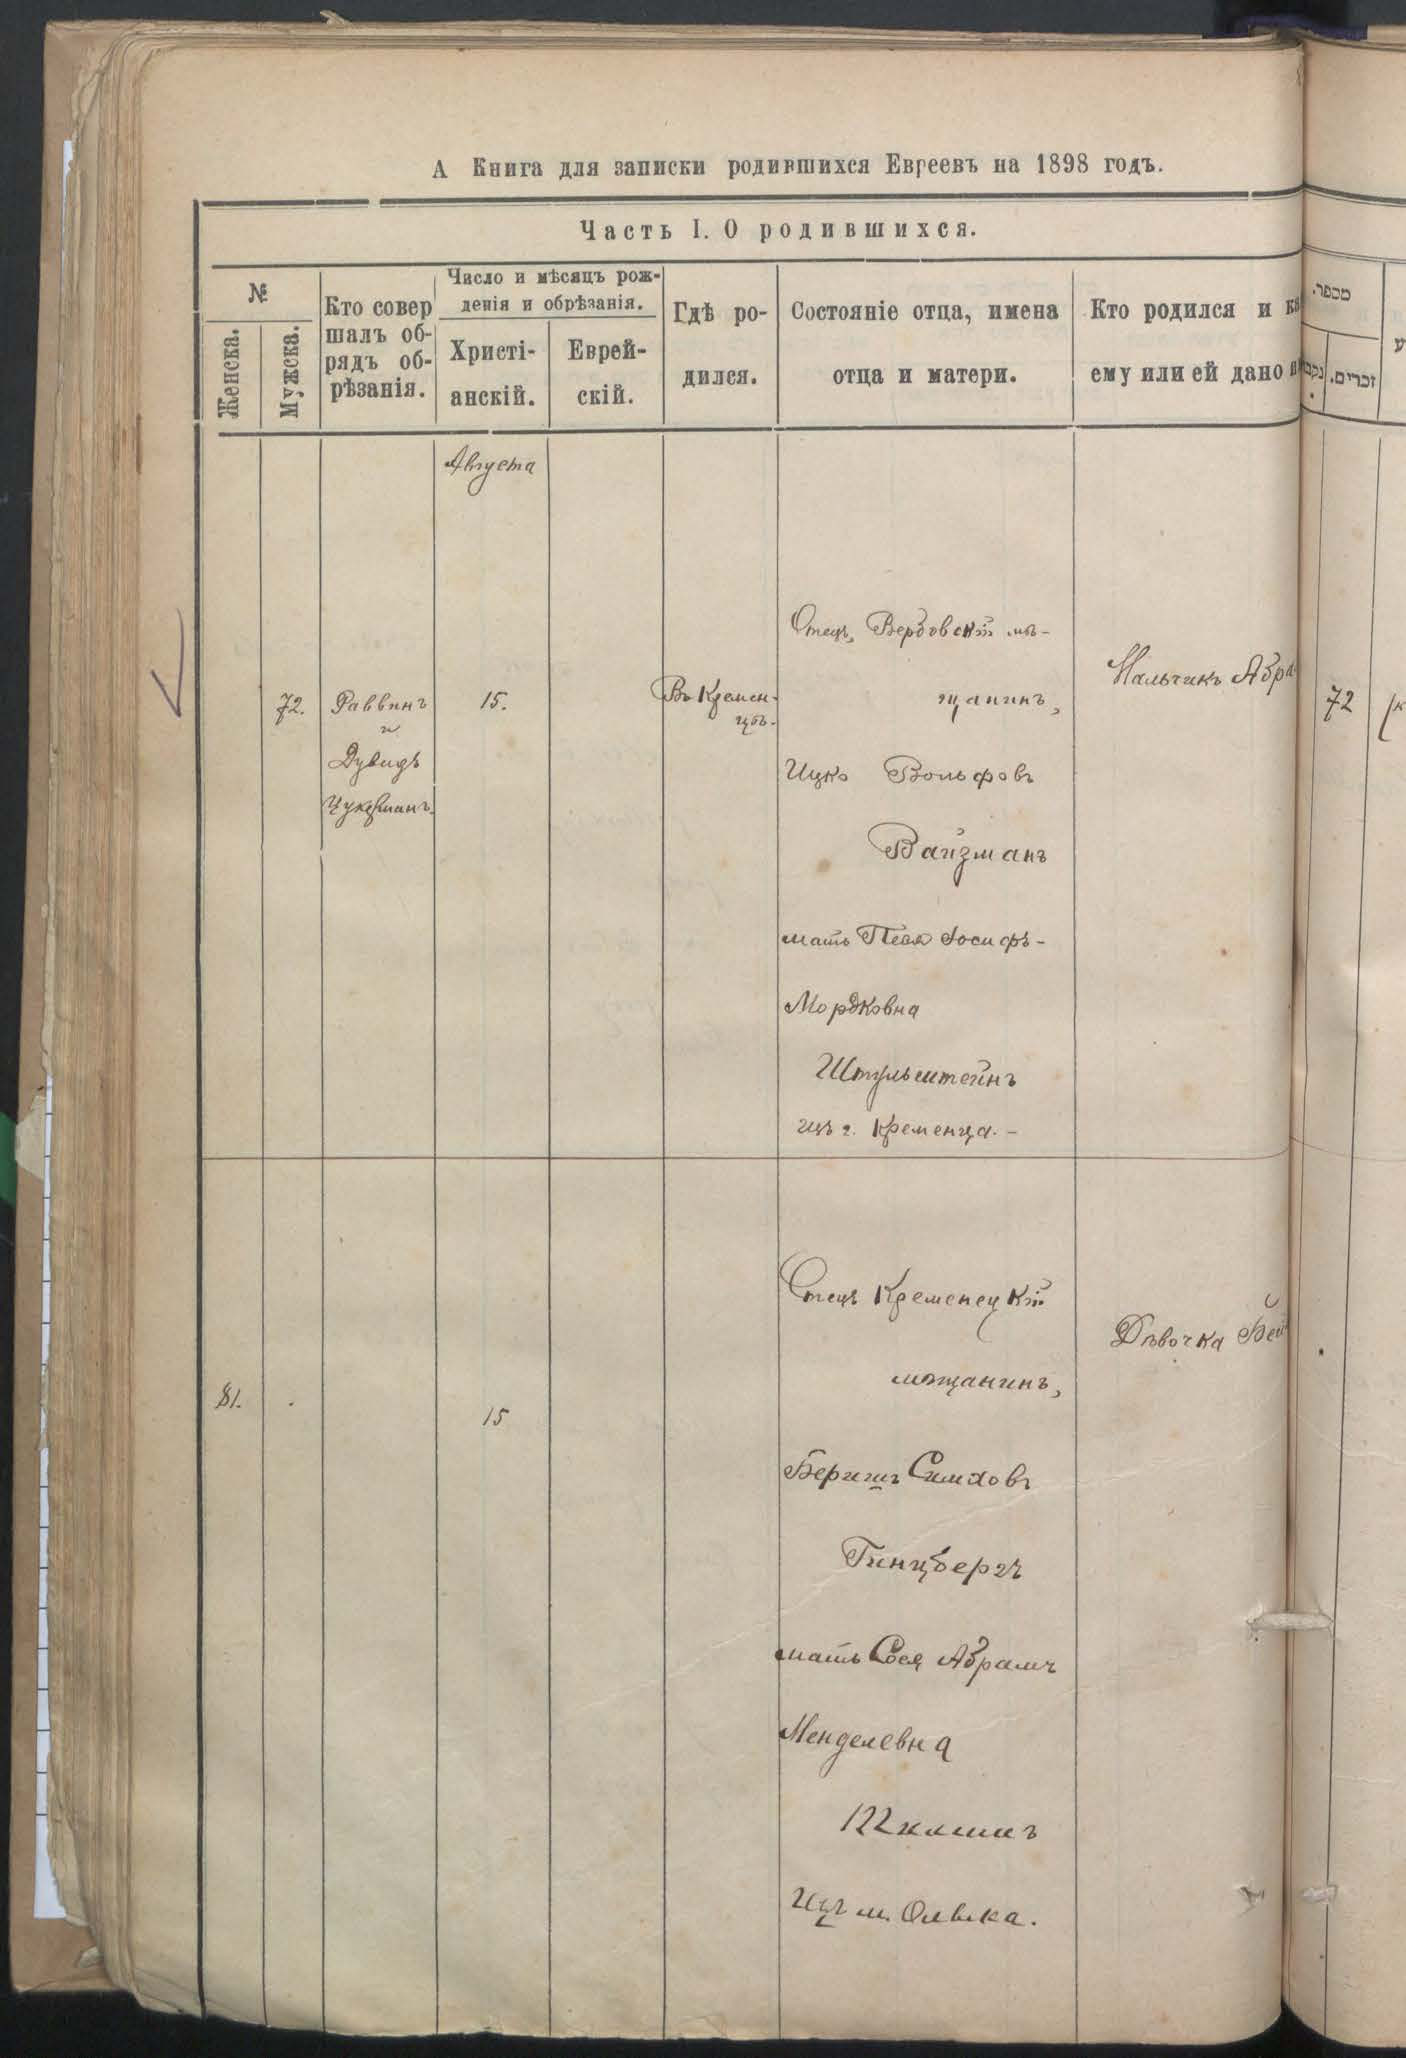 А Книга для записки родившихся Евреевъ на 1898 годъ.
Часть I. О родившихся.
№
Женска.
Мужска.
Кто совер
шалъ об-
рядъ об-
рѣзанія.
Число и мѣсяцъ рож-
денія и обрѣзанія.
Христі-
анскій.
Еврей-
скій.
Гдѣ ро-
дился.
Состояніе отца, имена
отца и матери.
Кто родился и
ему или ей дано
מספר.
זכרים.
Августа
72.
Раввинъ
и
Дувидъ
Цукерманъ.
15.
Въ Кремен-
цѣ.
Отецъ, Вербовскій мѣ-
щанинъ,
Ицко Вольфовъ
Вайзманъ
мать Песя Іосифъ-
Мордковна
Штульштейнъ
изъ г. Кременца. -
Мальчикъ Абра
72
81.
15
Отецъ Кременецкій
мѣщанинъ,
Беришъ Симховъ
Гинцбергъ
мать Сося Абрамъ
Менделевна
Изъ м. Олыка.
Дѣвочка